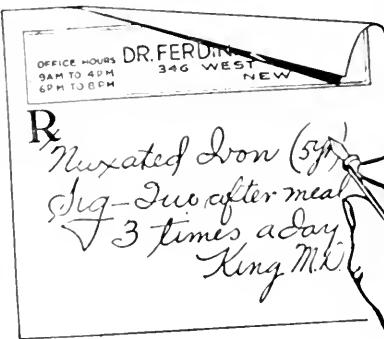 OFFICE HOURS
9AM TO 4PM
6PM TO 8PM
DR. FERDIN
346 WEST
NEW
℞
Nuxated Iron (5gr)
Sig – Two after meal
3 times a day
King M.D.